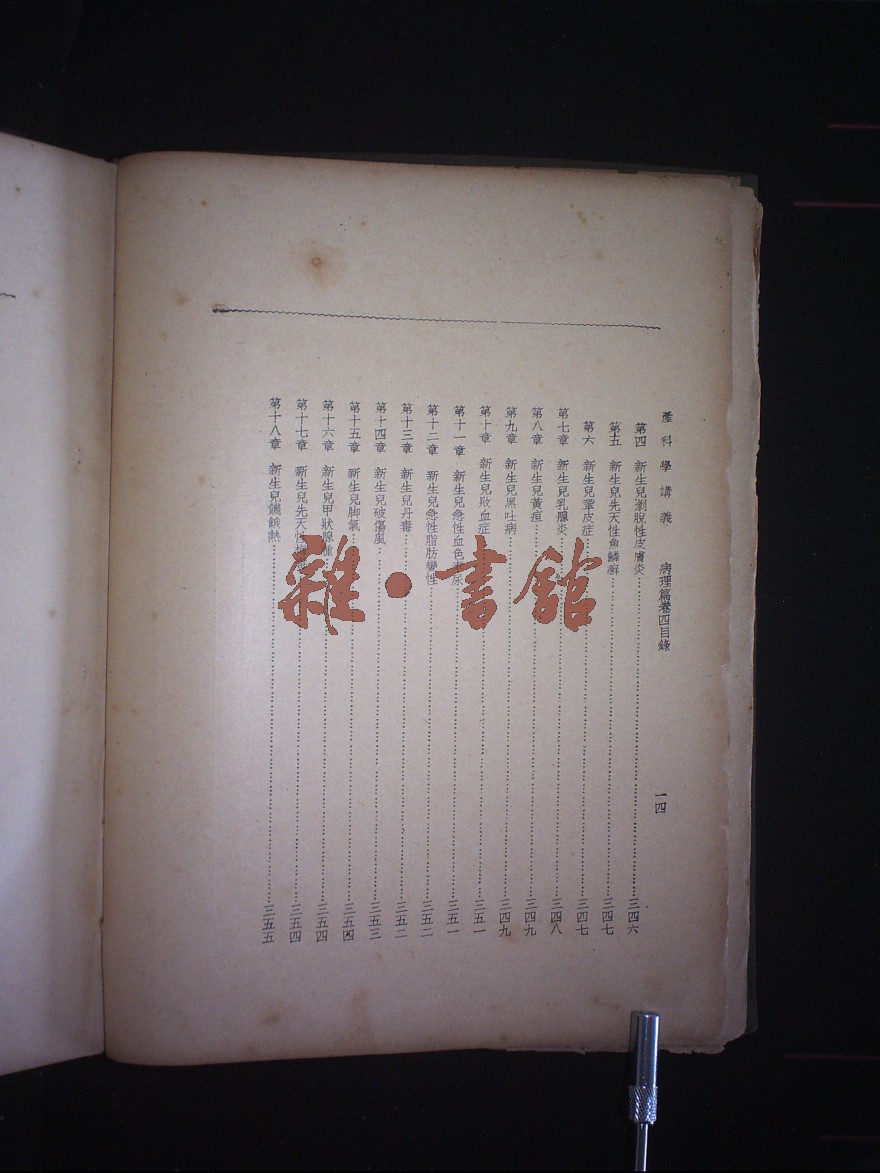 產科學講義 病理篇卷四目錄 一四
第四 新生兒剝脫性皮膚炎 三四六
第五 新生兒先天性魚鱗癬 三四七
第六 新生兒鞏皮症 三四七
第七章 新生兒乳腺炎 三四八
第八章 新生兒黃疸 三四九
第九章 新生兒黑吐病 三四九
第十章 新生兒敗血症 三五一
第十一章 新生兒急性血色素尿 三五一
第十二章 新生兒急性脂肪變性 三五二
第十三章 新生兒丹毒 三五二
第十四章 新生兒破傷風 三五三
第十五章 新生兒脚氣 三五四
第十六章 新生兒甲狀腺腫 三五四
第十七章 新生兒先天性 三五四
第十八章 新生兒饑餓熱 三五五
雜·書館